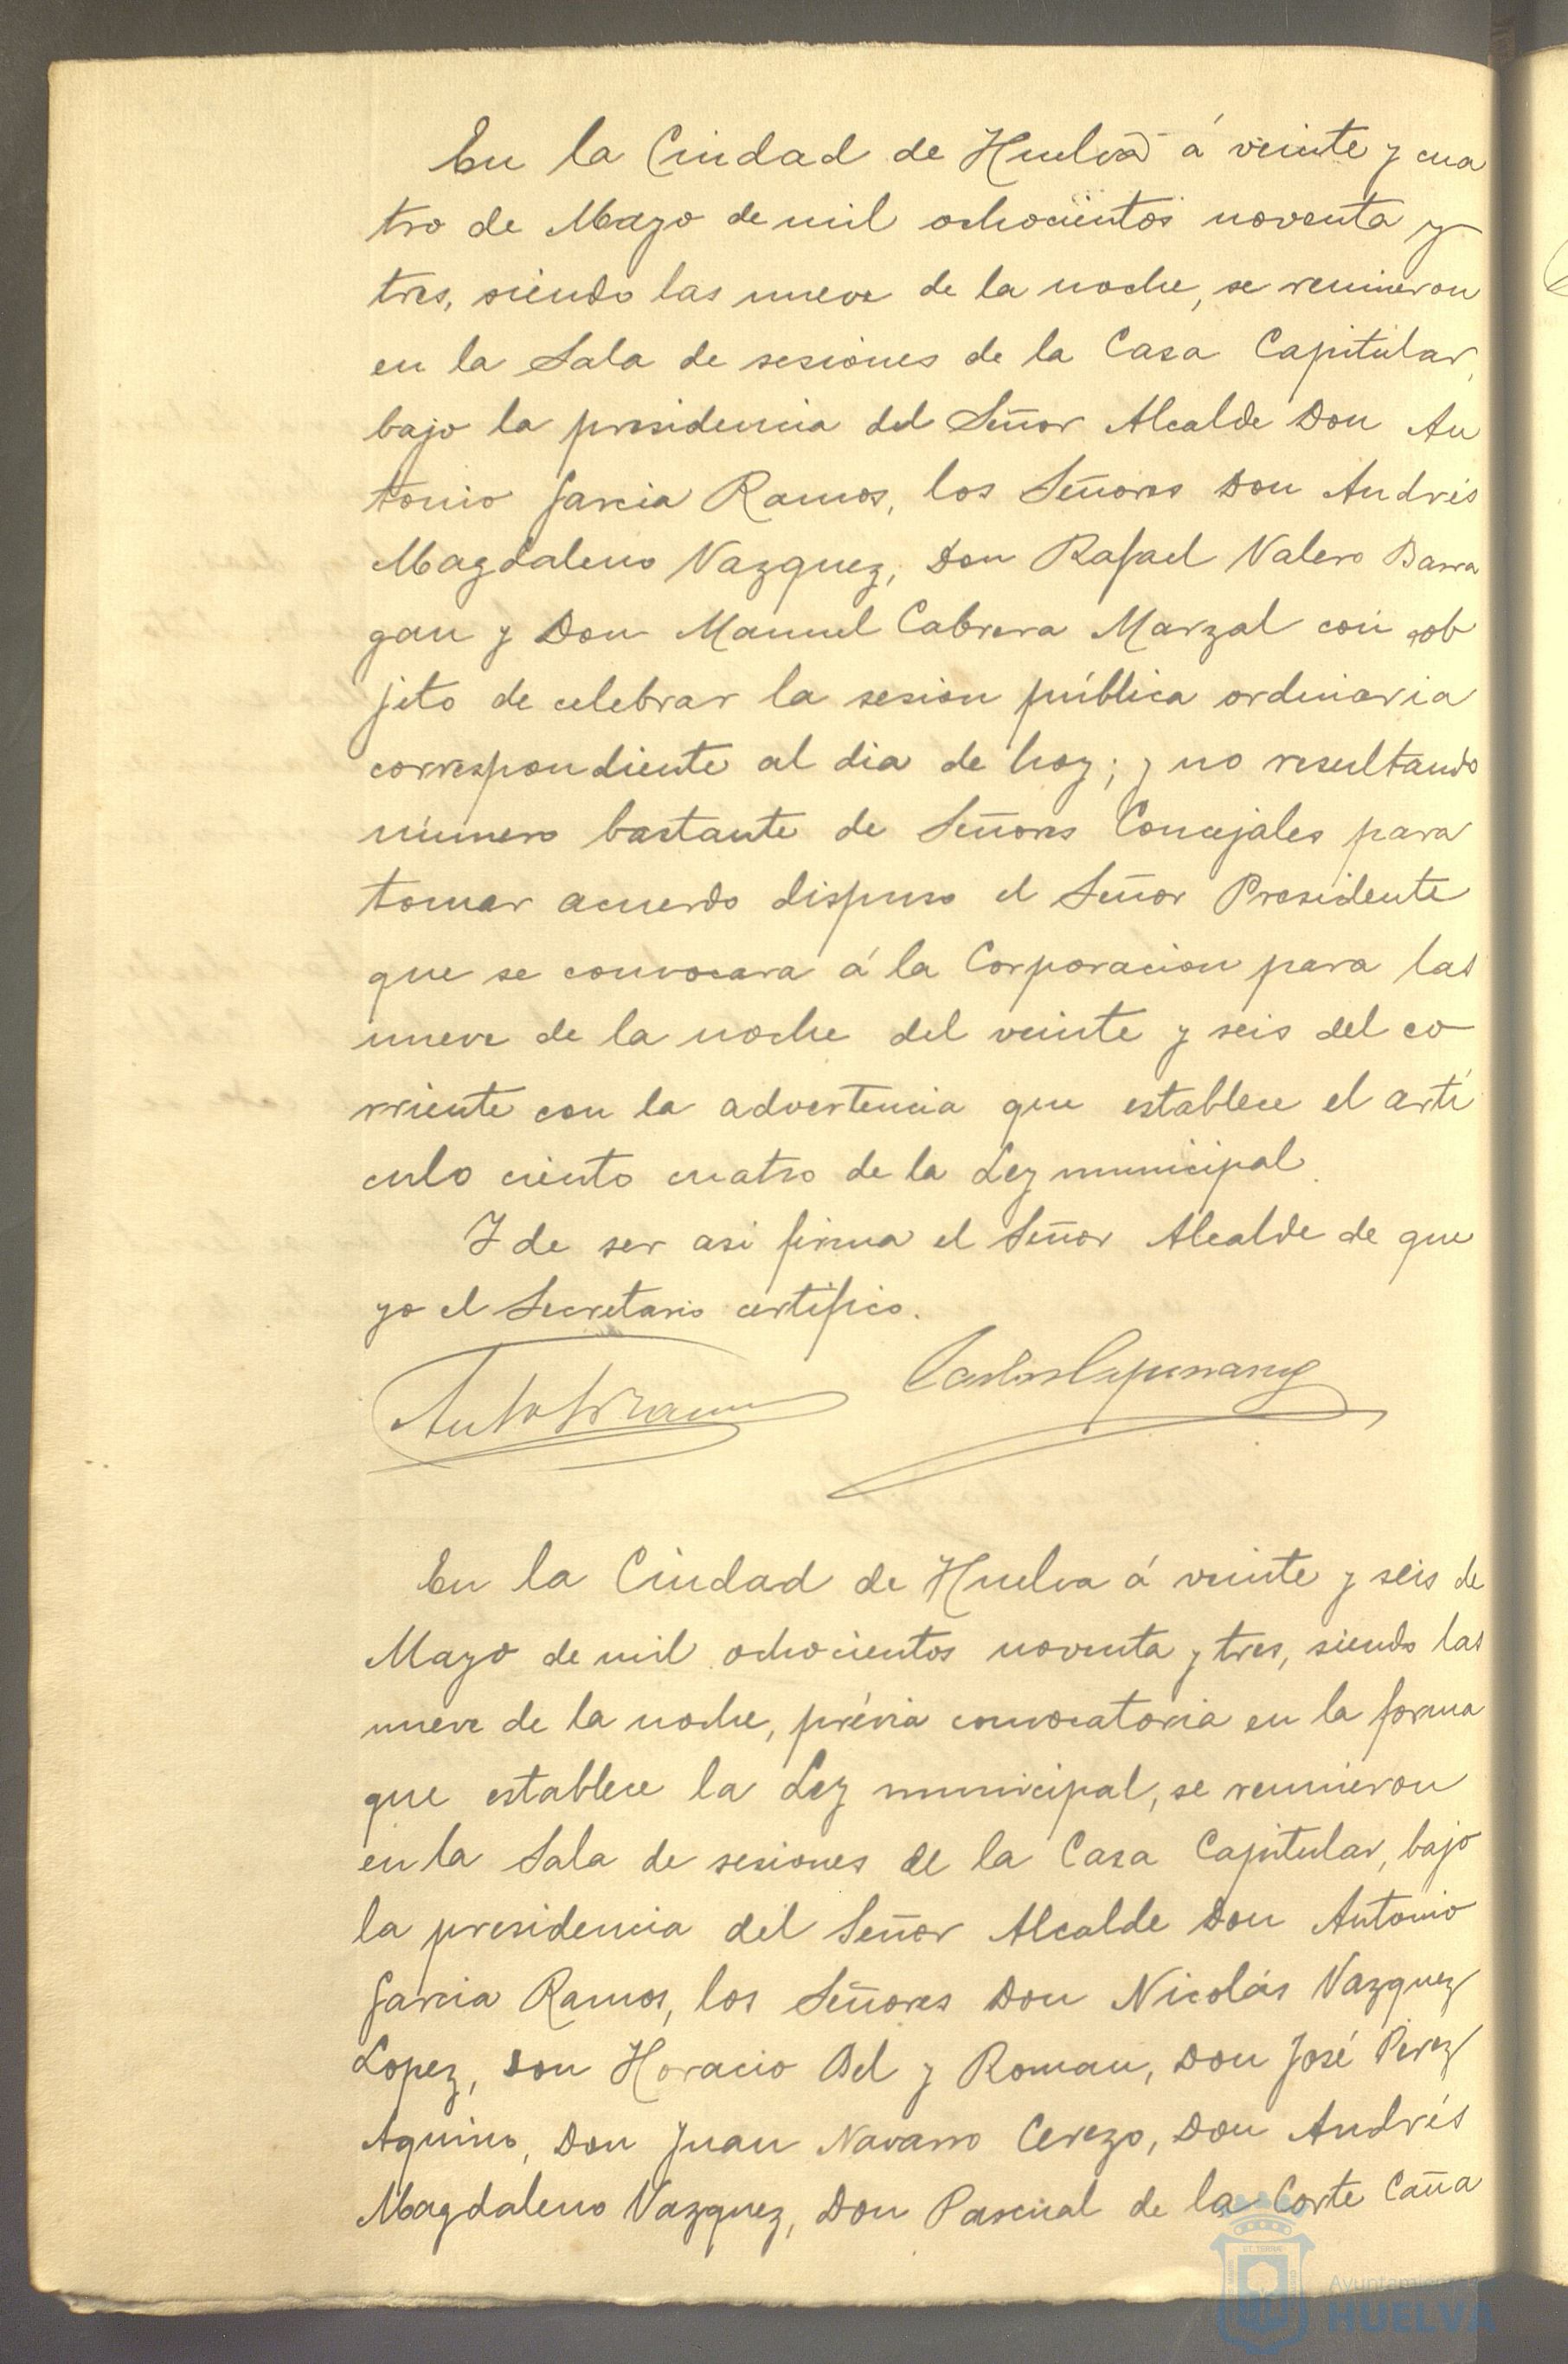 En la Ciudad de Huelva á veinte y cua
tro de Mayo de mil ochocientos noventa y
tres, siendo las nueve de la noche, se reunieron
en la Sala de sesiones de la Casa Capitular,
bajo la presidencia del Señor Alcalde Don An
tonio Garcia Ramos, los Señores Don Andrés
Magdaleno Vazquez, Don Rafael Valero Barra
gan y Don Manuel Cabrera Marzal con ob
jeto de celebrar la sesion pública ordinaria
correspondiente al dia de hoy; y no resultando
número bastante de Señores Concejales para
tomar acuerdo dispuso el Señor Presidente
que se convocara á la Corporacion para las
nueve de la noche del veinte y seis del co
rriente con la advertencia que establece el artí
culo ciento cuatro de la Ley municipal.
Y de ser asi firma el Señor Alcalde de que
yo el Secretario certifico.
En la Ciudad de Huelva á veinte y seis de
Mayo de mil ochocientos noventa y tres, siendo las
nueve de la noche, prévia convocatoria en la forma
que establece la Ley municipal, se reunieron
en la Sala de sesiones de la Casa Capitular, bajo
la presidencia del Señor Alcalde Don Antonio
Garcia Ramos, los Señores Don Nicolás Vazquez
Lopez, Don Horacio Bel y Roman, Don José Perez
Aquino, Don Juan Navarro Cerezo, Don Andrés
Magdaleno Vazquez, Don Pascual de la Corte Caña
Ayuntamiento
HUELVA